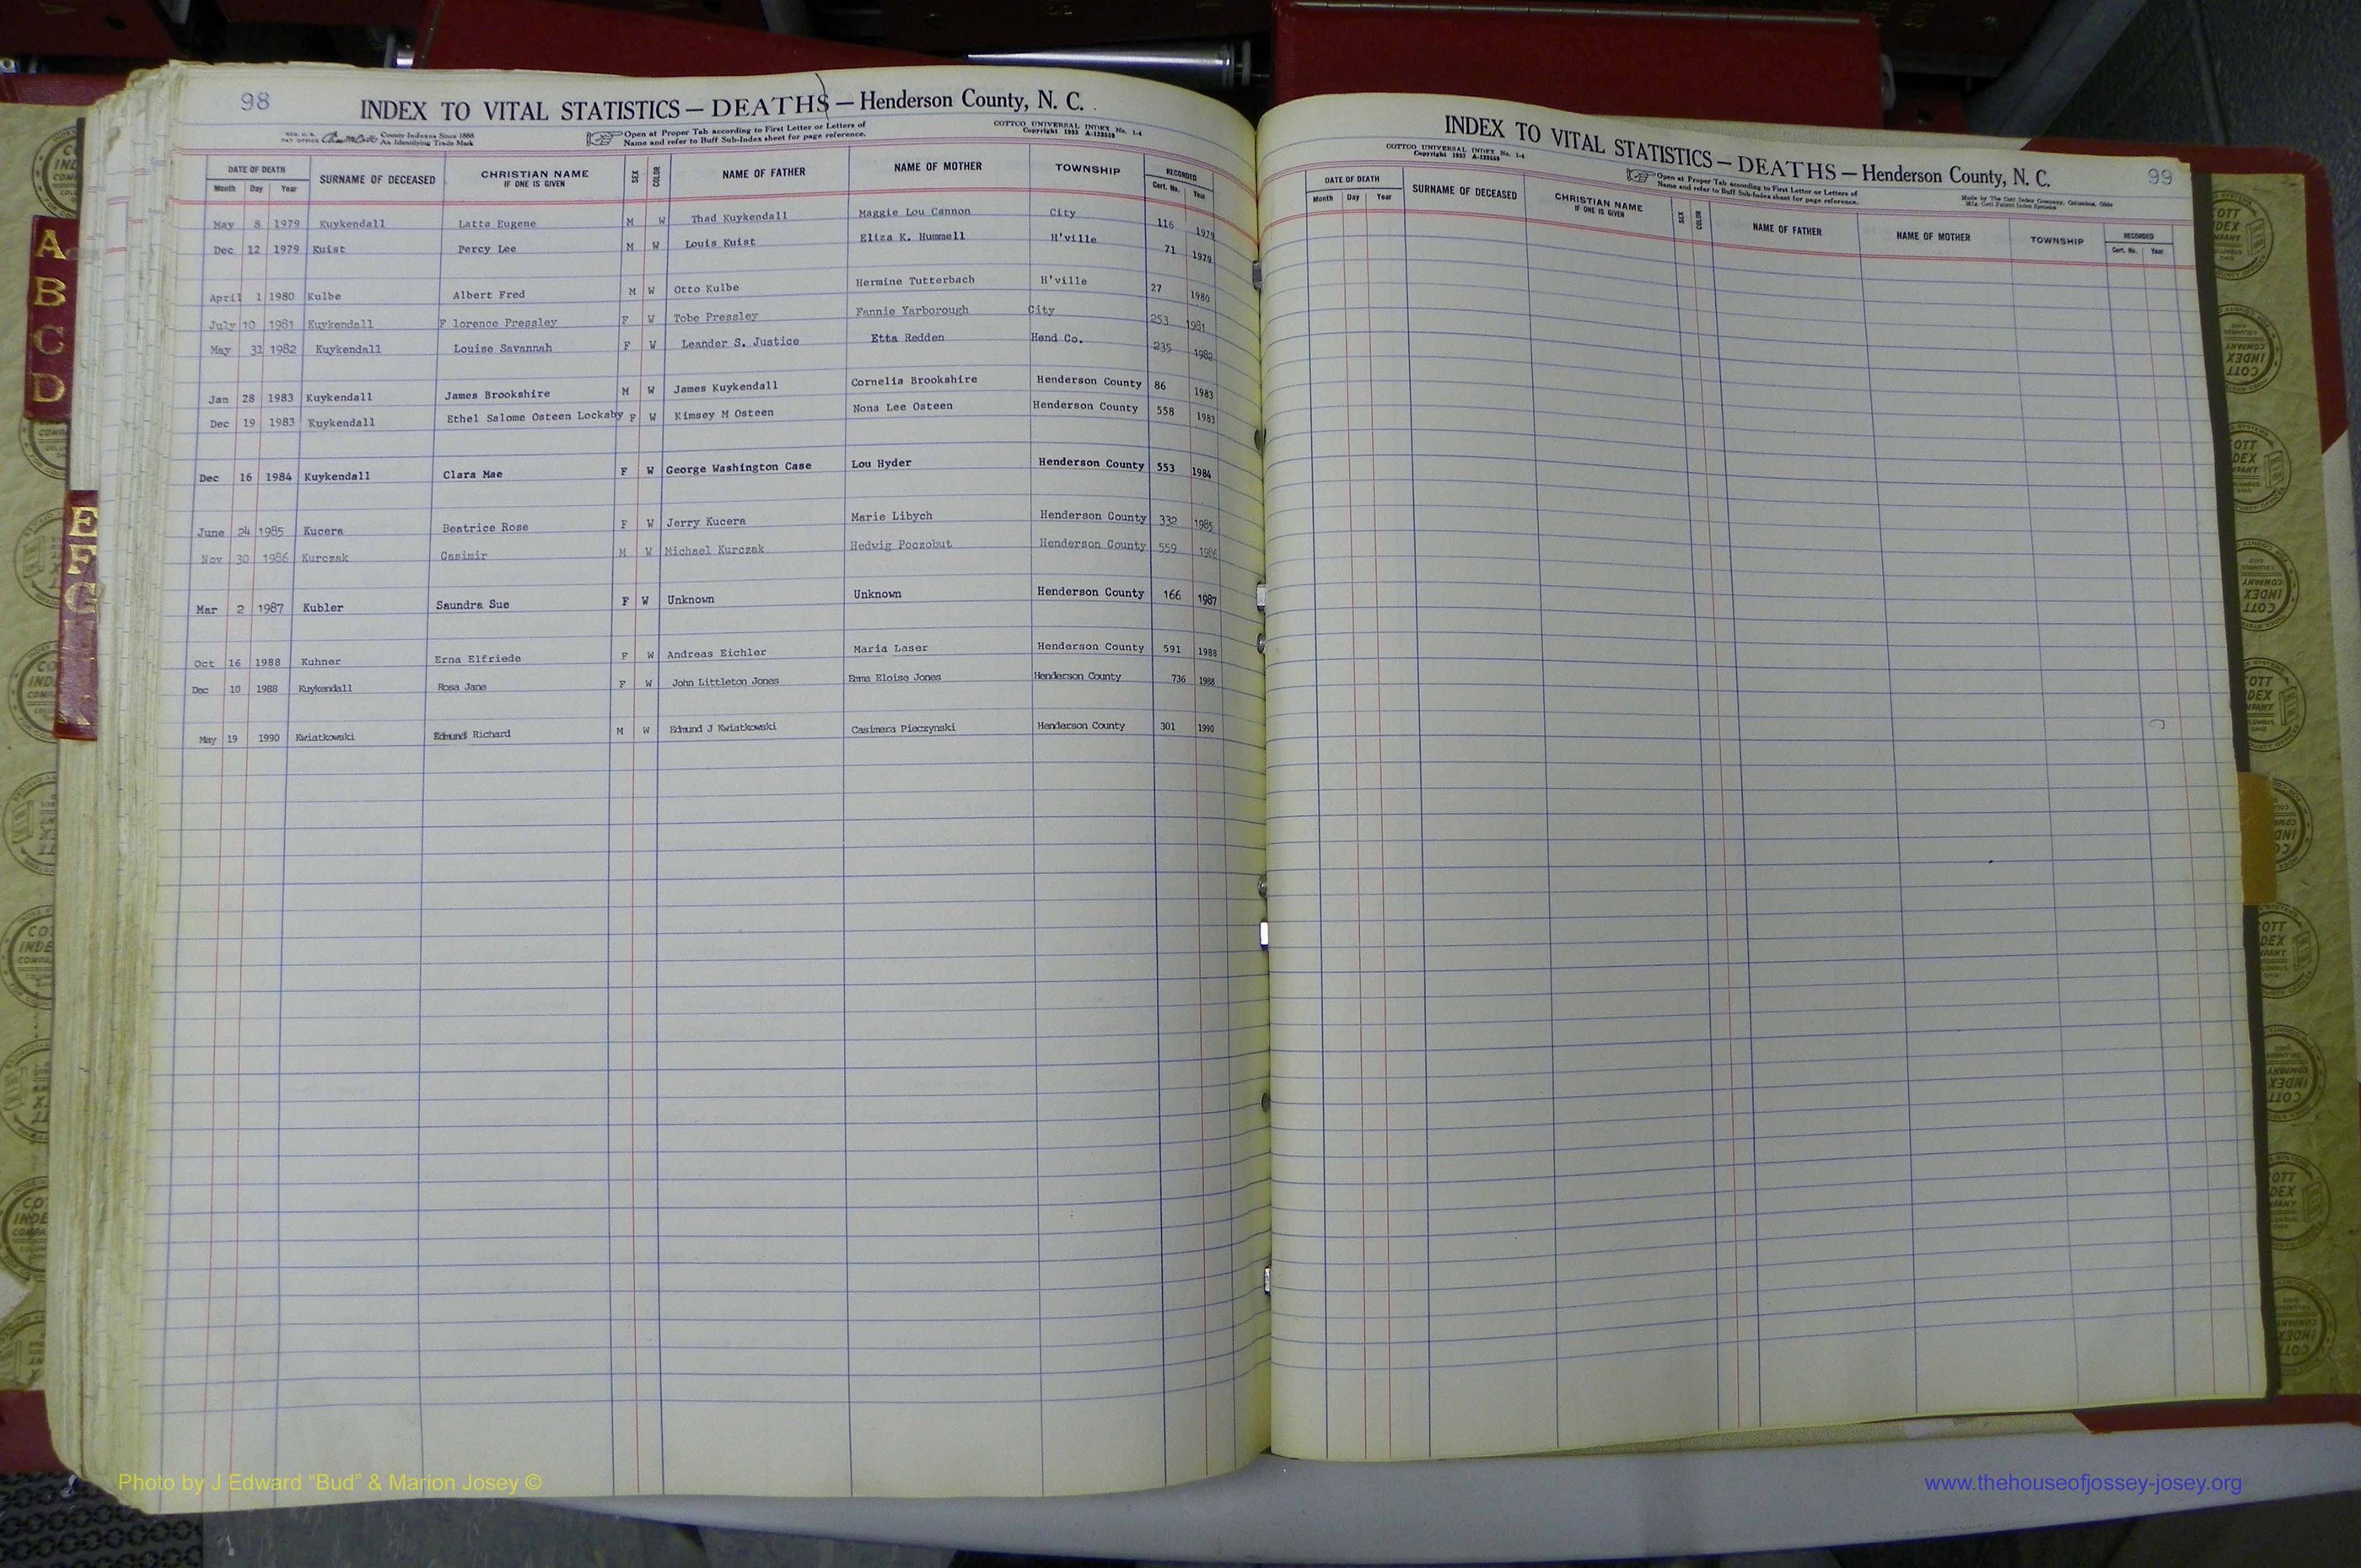 98
INDEX TO VITAL STATISTICS — DEATHS — Henderson County, N. C.
REG. U. S. PAT. OFFICE County Indexes Since 1888 An Identifying Trade Mark
Open at Proper Tab according to First Letter or Letters of
Name and refer to Buff Sub-Index sheet for page reference.
COTTCO UNIVERSAL INDEX No. 1-4
Copyright 1933 A-122559
DATE OF DEATH SURNAME OF DECEASED CHRISTIAN NAME IF ONE IS GIVEN SEX COLOR NAME OF FATHER NAME OF MOTHER TOWNSHIP RECORDED
Month Day Year Cert. No. Year
May 8 1979 Kuykendall Latta Eugene M W Thad Kuykendall Maggie Lou Cannon City 116 1979
Dec 12 1979 Kuist Percy Lee M W Louis Kuist Eliza K. Hummell H'ville 71 1979
April 1 1980 Kulbe Albert Fred M W Otto Kulbe Hermine Tutterbach H'ville 27 1980
July 10 1981 Kuykendall F lorence Pressley F W Tobe Pressley Fannie Yarborough City 253 1981
May 31 1982 Kuykendall Louise Savannah F W Leander S. Justice Etta Redden Hend Co. 235 1982
Jan 28 1983 Kuykendall James Brookshire M W James Kuykendall Cornelia Brookshire Henderson County 86 1983
Dec 19 1983 Kuykendall Ethel Salome Osteen Lockaby F W Kimsey M Osteen Nona Lee Osteen Henderson County 558 1983
Dec 16 1984 Kuykendall Clara Mae F W George Washington Case Lou Hyder Henderson County 553 1984
June 24 1985 Kucera Beatrice Rose F W Jerry Kucera Marie Libych Henderson County 332 1985
Nov 30 1986 Kurczak Casimir M W Michael Kurczak Hedwig Poczobut Henderson County 559 1986
Mar 2 1987 Kubler Saundra Sue F W Unknown Unknown Henderson County 166 1987
Oct 16 1988 Kuhner Erna Elfriede F W Andreas Eichler Maria Laser Henderson County 591 1988
Dec 10 1988 Kuykendall Rosa Jane F W John Littleton Jones Emma Eloise Jones Henderson County 736 1988
May 19 1990 Kwiatkowski Edmund Richard M W Edmund J Kwiatkowski Casimera Pieczynski Henderson County 301 1990
INDEX TO VITAL STATISTICS — DEATHS — Henderson County, N. C.
99
COTTCO UNIVERSAL INDEX No. 1-4
Copyright 1933 A-122559
Open at Proper Tab according to First Letter or Letters of
Name and refer to Buff Sub-Index sheet for page reference.
Made by The Cott Index Company, Columbus, Ohio
Mfg. Cott Patent Index Systems
DATE OF DEATH SURNAME OF DECEASED CHRISTIAN NAME IF ONE IS GIVEN SEX COLOR NAME OF FATHER NAME OF MOTHER TOWNSHIP RECORDED
Month Day Year Cert. No. Year
A
B
C
D
E
F
G
Photo by J Edward “Bud” & Marion Josey ©
www.thehouseofjossey-josey.org